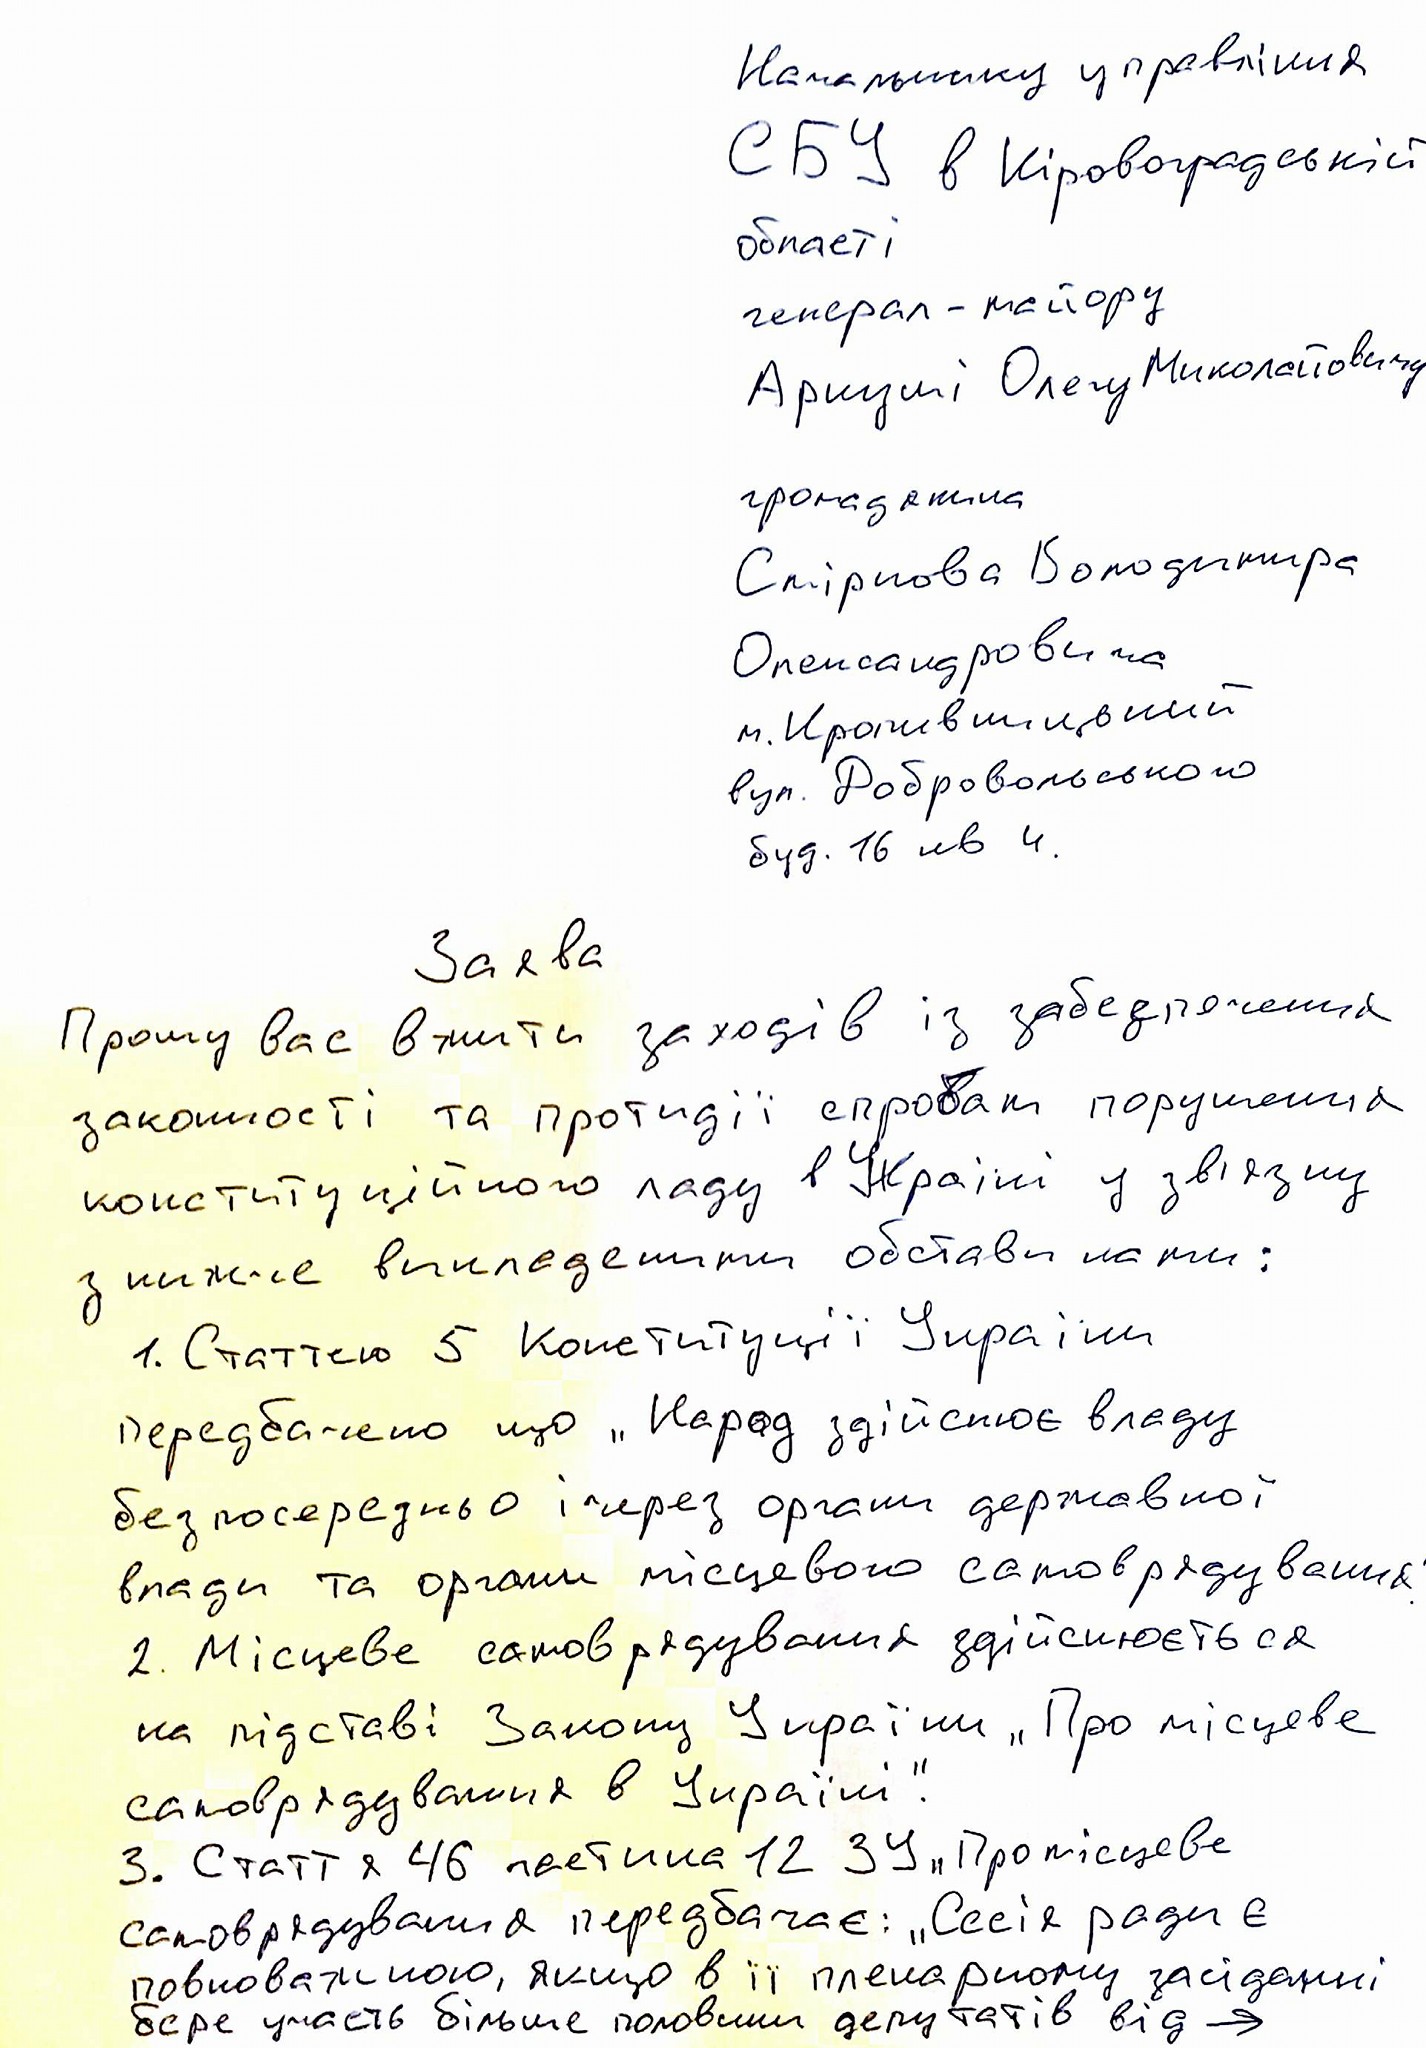 Начальнику управління
СБУ в Кіровоградській
області
генерал-майору
Олегу Миколайовичу
громадянина
Смірнова Володимира
Олександровича
м. Кропивницький
вул. Добровольського
буд. 16 кв 4.
Заява
Прошу вас вжити заходів із забезпечення
законності та протидії спробам порушення
конституційного ладу в Україні у зв'язку
з нижче викладеними обставинами:
1. Статтею 5 Конституції України
передбачено що „Народ здійснює владу
безпосередньо і через органи державної
влади та органи місцевого самоврядування".
2. Місцеве самоврядування здійснюється
на підставі Закону України „Про місцеве
самоврядування в Україні".
3. Стаття 46 частина 12 ЗУ „Про місцеве
самоврядування передбачає: „Сесія ради є
повноважною, якщо в її пленарному засіданні
бере участь більше половини депутатів від →